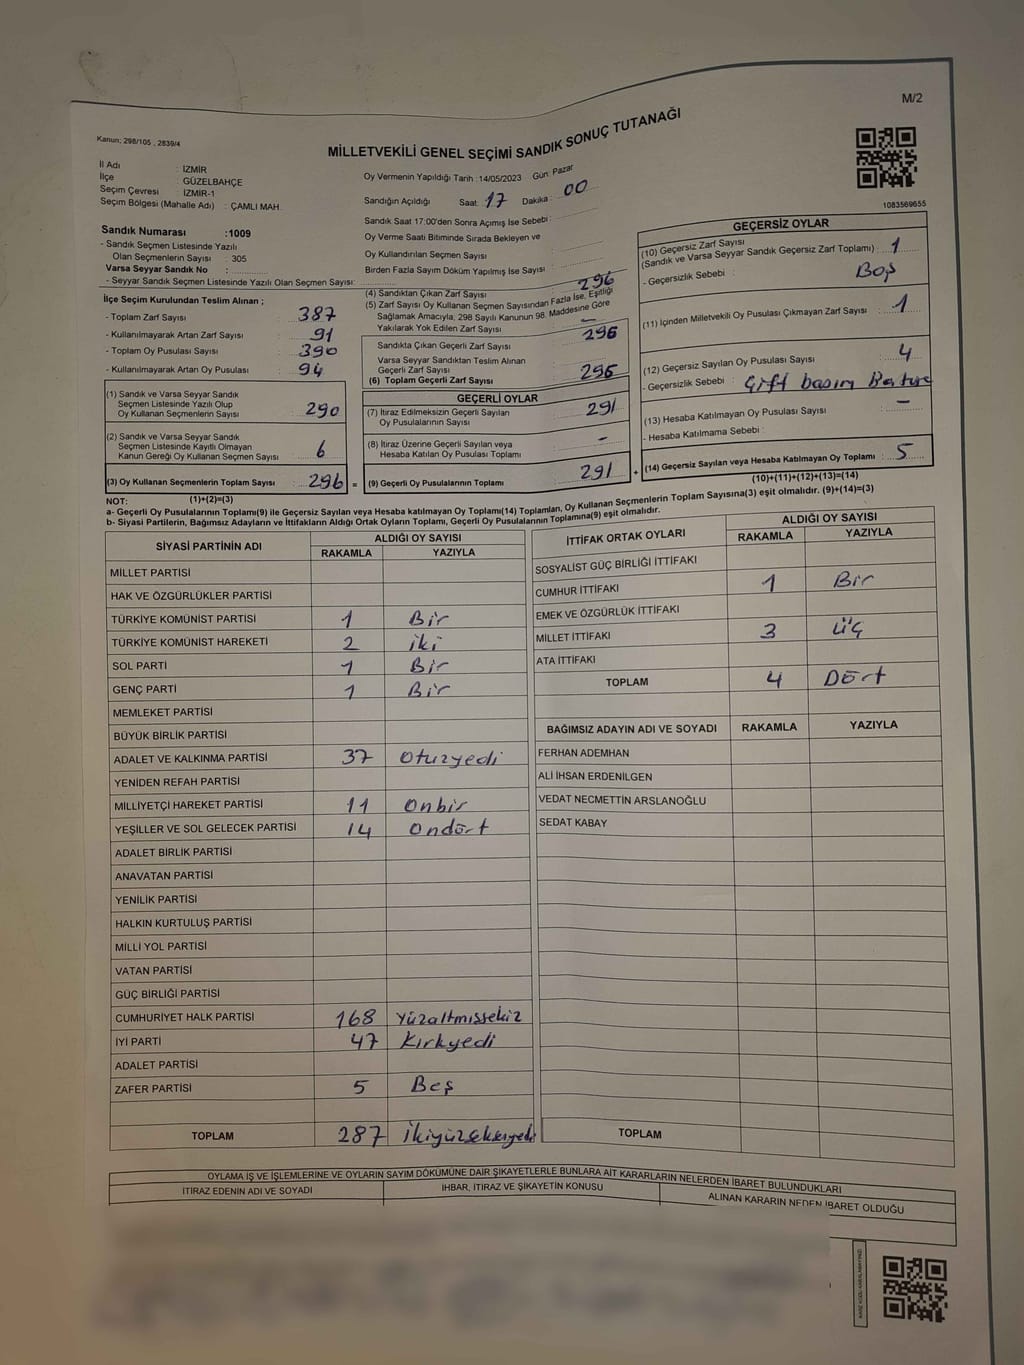 M/2
Kanun; 298/105 , 2839/4
MİLLETVEKİLİ GENEL SEÇİMİ SANDIK SONUÇ TUTANAĞI
İl Adı : İZMİR
İlçe : GÜZELBAHÇE
Seçim Çevresi : İZMİR-1
Seçim Bölgesi (Mahalle Adı) : ÇAMLI MAH.
Sandık Numarası :1009
- Sandık Seçmen Listesinde Yazılı
Olan Seçmenlerin Sayısı : 305
Varsa Seyyar Sandık No :
- Seyyar Sandık Seçmen Listesinde Yazılı Olan Seçmen Sayısı:
Oy Vermenin Yapıldığı Tarih :14/05/2023 Gün: Pazar
Sandığın Açıldığı Saat: 17 Dakika : 00
Sandık Saat 17:00'den Sonra Açımış İse Sebebi :
Oy Verme Saati Bitiminde Sırada Bekleyen ve
Oy Kullandırılan Seçmen Sayısı
Birden Fazla Sayım Döküm Yapılmış İse Sayısı :
1083569655
İlçe Seçim Kurulundan Teslim Alınan ;
- Toplam Zarf Sayısı : 387
- Kullanılmayarak Artan Zarf Sayısı : 91
- Toplam Oy Pusulası Sayısı : 390
- Kullanılmayarak Artan Oy Pusulası : 94
(1) Sandık ve Varsa Seyyar Sandık
Seçmen Listesinde Yazılı Olup
Oy Kullanan Seçmenlerin Sayısı : 290
(2) Sandık ve Varsa Seyyar Sandık
Seçmen Listesinde Kayıtlı Olmayan
Kanun Gereği Oy Kullanan Seçmen Sayısı : 6
(3) Oy Kullanan Seçmenlerin Toplam Sayısı : 296 =
(4) Sandıktan Çıkan Zarf Sayısı : 296
(5) Zarf Sayısı Oy Kullanan Seçmen Sayısından Fazla İse, Eşitliği
Sağlamak Amacıyla, 298 Sayılı Kanunun 98. Maddesine Göre
Yakılarak Yok Edilen Zarf Sayısı : –
Sandıkta Çıkan Geçerli Zarf Sayısı : 295
Varsa Seyyar Sandıktan Teslim Alınan
Geçerli Zarf Sayısı
(6) Toplam Geçerli Zarf Sayısı : 295
GEÇERLİ OYLAR
(7) İtiraz Edilmeksizin Geçerli Sayılan
Oy Pusulalarının Sayısı : 291
(8) İtiraz Üzerine Geçerli Sayılan veya
Hesaba Katılan Oy Pusulası Toplamı : –
(9) Geçerli Oy Pusulalarının Toplamı : 291 +
GEÇERSİZ OYLAR
(10) Geçersiz Zarf Sayısı
(Sandık ve Varsa Seyyar Sandık Geçersiz Zarf Toplamı) : 1
- Geçersizlik Sebebi : Boş
(11) İçinden Milletvekili Oy Pusulası Çıkmayan Zarf Sayısı : 1
(12) Geçersiz Sayılan Oy Pusulası Sayısı : 4
- Geçersizlik Sebebi : Çift basım
(13) Hesaba Katılmayan Oy Pusulası Sayısı : –
- Hesaba Katılmama Sebebi :
(14) Geçersiz Sayılan veya Hesaba Katılmayan Oy Toplamı : 5
(10)+(11)+(12)+(13)=(14)
NOT: (1)+(2)=(3)
a- Geçerli Oy Pusulalarının Toplamı(9) ile Geçersiz Sayılan veya Hesaba katılmayan Oy Toplamı(14) Toplamları, Oy Kullanan Seçmenlerin Toplam Sayısına(3) eşit olmalıdır. (9)+(14)=(3)
b- Siyasi Partilerin, Bağımsız Adayların ve İttifakların Aldığı Ortak Oyların Toplamı, Geçerli Oy Pusulalarının Toplamına(9) eşit olmalıdır.
SİYASİ PARTİNİN ADI ALDIĞI OY SAYISI
RAKAMLA YAZIYLA
MİLLET PARTİSİ
HAK VE ÖZGÜRLÜKLER PARTİSİ
TÜRKİYE KOMÜNİST PARTİSİ 1 Bir
TÜRKİYE KOMÜNİST HAREKETİ 2 iki
SOL PARTİ 1 Bir
GENÇ PARTİ 1 Bir
MEMLEKET PARTİSİ
BÜYÜK BİRLİK PARTİSİ
ADALET VE KALKINMA PARTİSİ 37 Otuzyedi
YENİDEN REFAH PARTİSİ
MİLLİYETÇİ HAREKET PARTİSİ 11 Onbir
YEŞİLLER VE SOL GELECEK PARTİSİ 14 Ondört
ADALET BİRLİK PARTİSİ
ANAVATAN PARTİSİ
YENİLİK PARTİSİ
HALKIN KURTULUŞ PARTİSİ
MİLLİ YOL PARTİSİ
VATAN PARTİSİ
GÜÇ BİRLİĞİ PARTİSİ
CUMHURİYET HALK PARTİSİ 168 Yüzaltmışsekiz
İYİ PARTİ 47 Kırkyedi
ADALET PARTİSİ
ZAFER PARTİSİ 5 Beş
TOPLAM 287 İkiyüzseksenyedi
İTTİFAK ORTAK OYLARI ALDIĞI OY SAYISI
RAKAMLA YAZIYLA
SOSYALİST GÜÇ BİRLİĞİ İTTİFAKI
CUMHUR İTTİFAKI 1 Bir
EMEK VE ÖZGÜRLÜK İTTİFAKI
MİLLET İTTİFAKI 3 Üç
ATA İTTİFAKI
TOPLAM 4 Dört
BAĞIMSIZ ADAYIN ADI VE SOYADI RAKAMLA YAZIYLA
FERHAN ADEMHAN
ALİ İHSAN ERDENİLGEN
VEDAT NECMETTİN ARSLANOĞLU
SEDAT KABAY
TOPLAM
OYLAMA İŞ VE İŞLEMLERİNE VE OYLARIN SAYIM DÖKÜMÜNE DAİR ŞİKAYETLERLE BUNLARA AİT KARARLARIN NELERDEN İBARET BULUNDUKLARI
İTİRAZ EDENİN ADI VE SOYADI İHBAR, İTİRAZ VE ŞİKAYETİN KONUSU ALINAN KARARIN NEDEN İBARET OLDUĞU